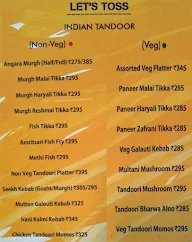 LET'S TOSS
INDIAN TANDOOR
(Non-Veg)
Angara Murgh (Half/Full) ₹275/385
Murgh Malai Tikka ₹295
Murgh Haryali Tikka ₹295
Murgh Reshmai Tikka ₹295
Fish Tikka ₹295
Amritsari Fish Fry ₹295
Methi Fish ₹295
Non Veg Tandoori Platter ₹395
Seekh Kebab (Gosht/Murgh) ₹305/295
Mutton Galouti Kebab ₹325
Irani Kalmi Kebab ₹345
Chicken Tandoori Momos ₹325
(Veg)
Assorted Veg Platter ₹345
Paneer Malai Tikka ₹285
Paneer Haryali Tikka ₹285
Paneer Zafrani Tikka ₹285
Veg Galauti Kebab ₹285
Multani Mushroom ₹295
Tandoori Mushroom ₹295
Tandoori Bharwa Aloo ₹285
Veg Tandoori Momos ₹295